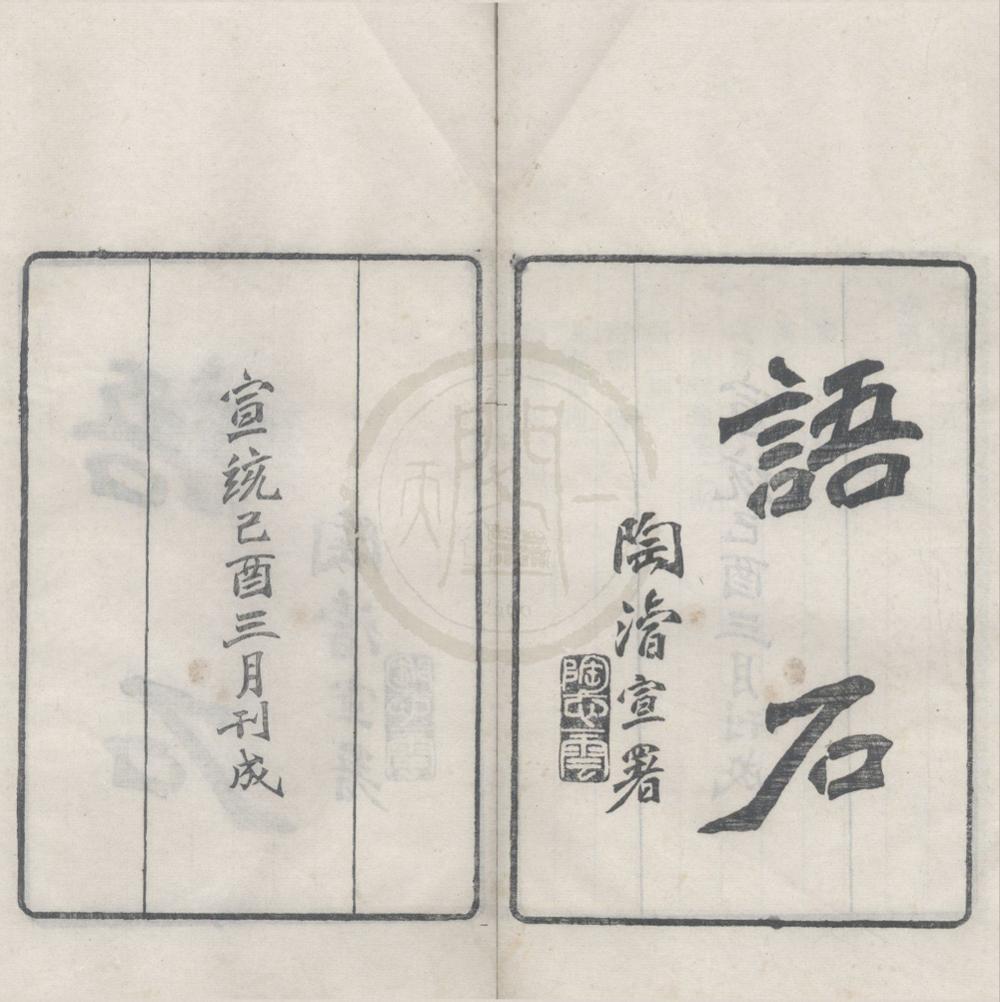 語石
陶濬宣署
陶心雲
宣統己酉三月刊成